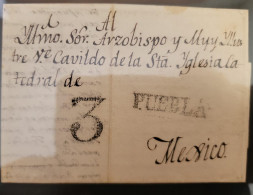 Al
Yllmo. Sor. Arzobispo y Muy Yllus
tre Ve. Cavildo de la Sta. Yglesia Ca-
tedral de
3
PUEBLA
Mexico.